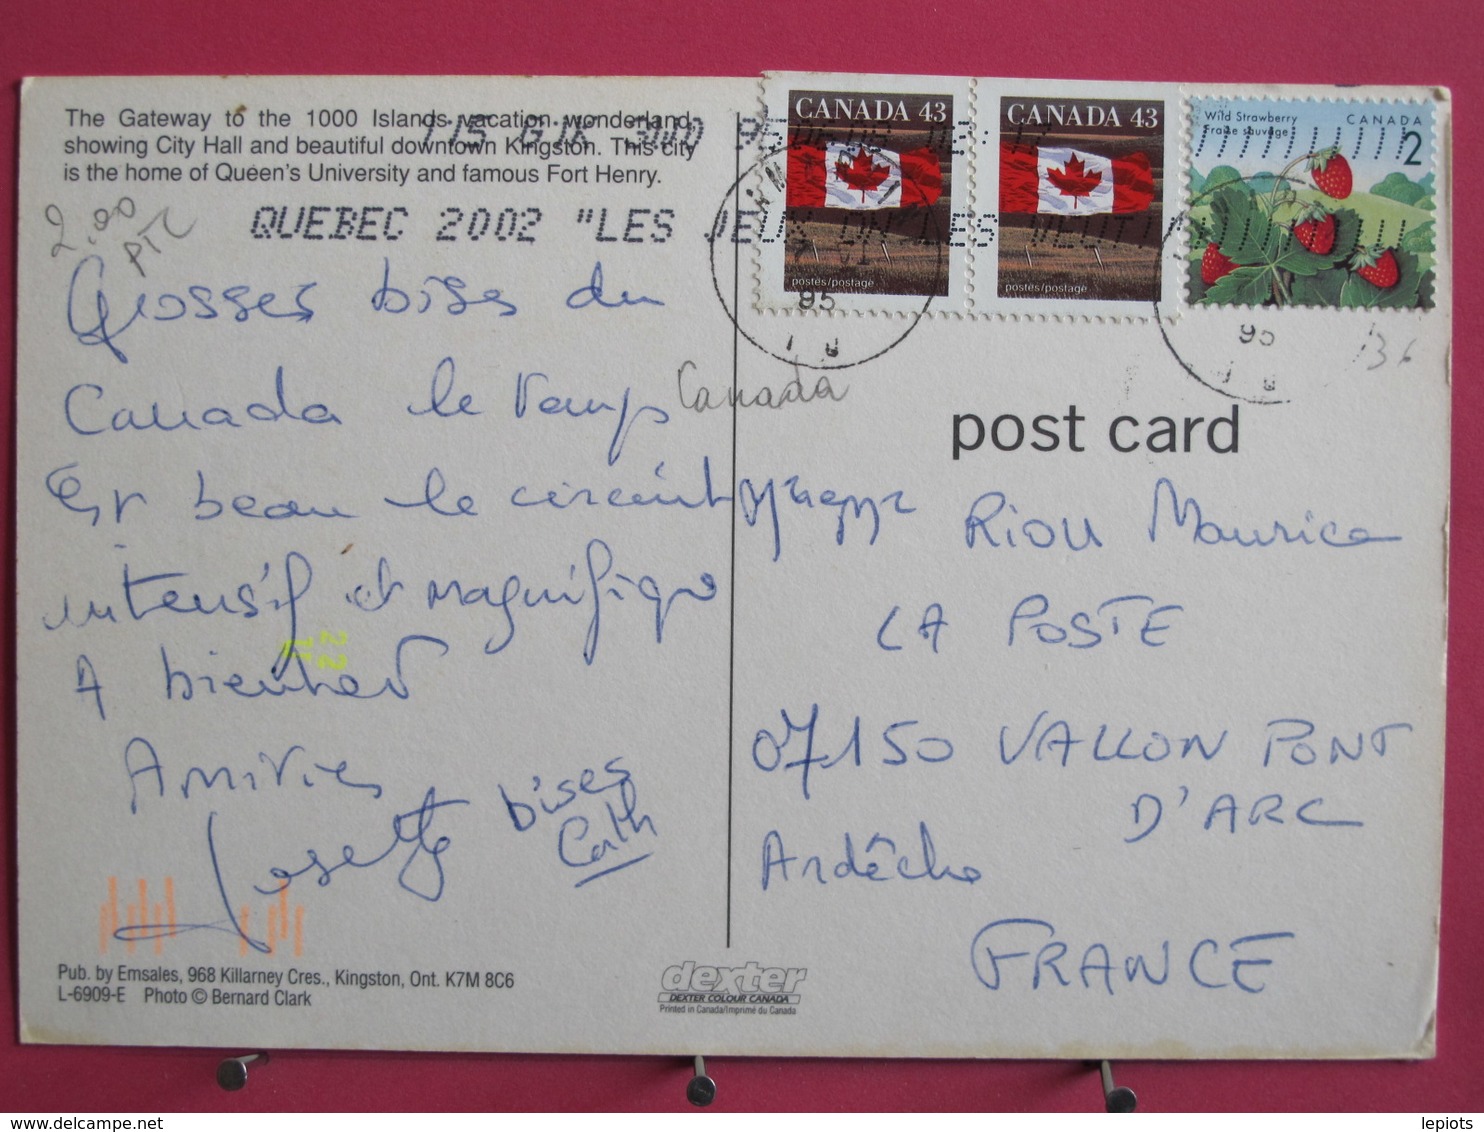 The Gateway to the 1000 Islands vacation wonderland,
showing City Hall and beautiful downtown Kingston. This city
is the home of Queen's University and famous Fort Henry.
QUEBEC 2002 "LES JEUX ON LES VEUT!"
2.00
PTC
CANADA 43
postes/postage
CANADA 43
postes/postage
Wild Strawberry
Fraise sauvage
CANADA
2
95
95
136
Grosses bises du
Canada le temps
Canada
est beau le circuit
intensif et magnifique
A bientot
Amitiés
Josette
bises
Cath
post card
Mr Riou Maurice
LA POSTE
07150 VALLON PONT
D'ARC
Ardêche
FRANCE
Pub. by Emsales, 968 Killarney Cres., Kingston, Ont. K7M 8C6
L-6909-E Photo © Bernard Clark
dexter
DEXTER COLOUR CANADA
Printed in Canada/Imprimé du Canada
lepiots